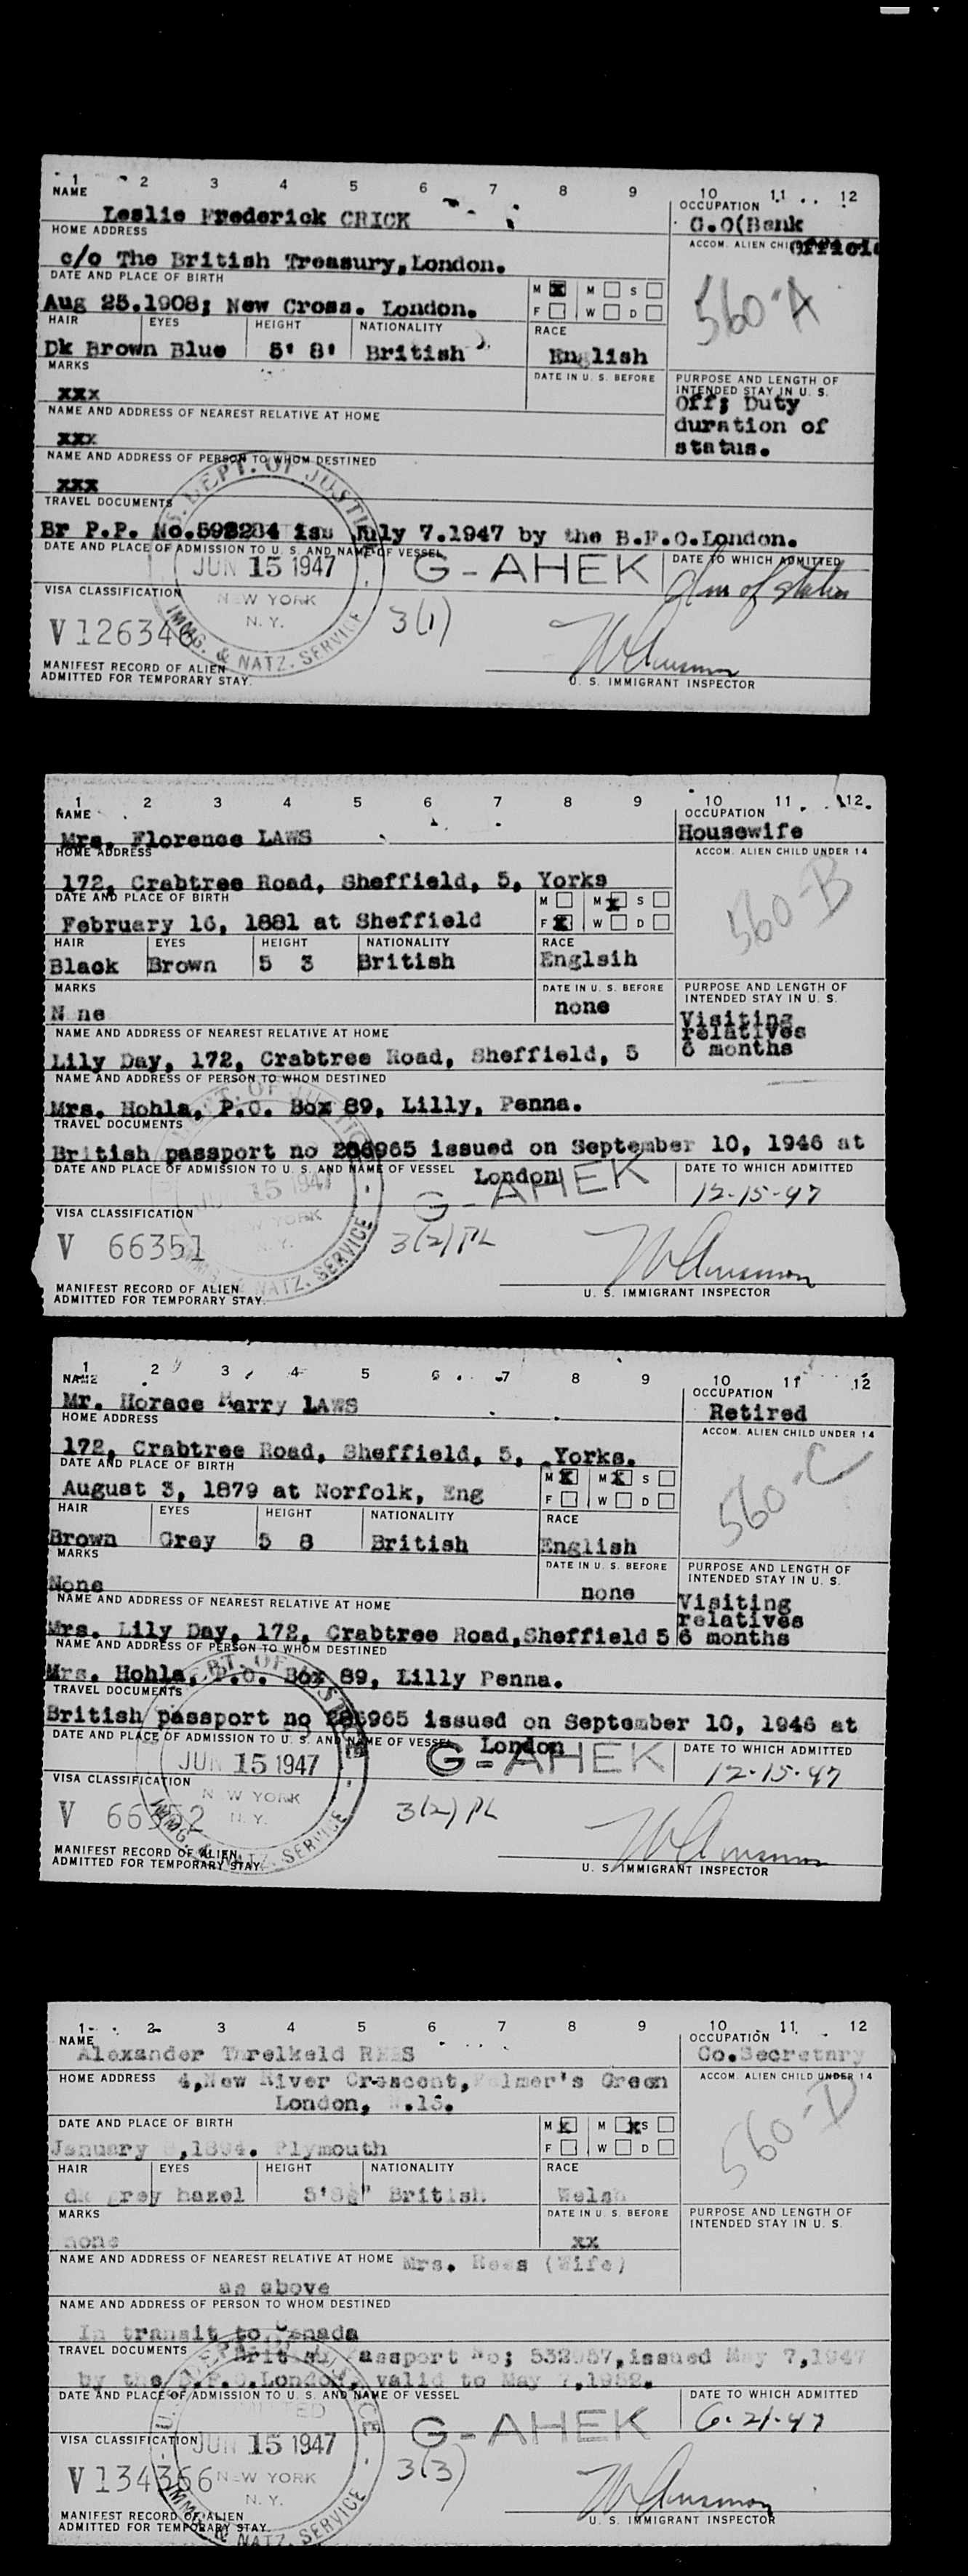 1 2 3 4 5 6 7 8 9 10 11 12
NAME OCCUPATION
Leslie Frederick CRICK G.O(Bank
HOME ADDRESS ACCOM. ALIEN CHI Officia
c/o The British Treasury, London. 560-A
DATE AND PLACE OF BIRTH M M S
Aug 25.1908; New Cross. London. F W D
HAIR EYES HEIGHT NATIONALITY RACE
Dk Brown Blue 5' 8' British English
MARKS DATE IN U. S. BEFORE PURPOSE AND LENGTH OF
INTENDED STAY IN U. S.
xxx Off; Duty
NAME AND ADDRESS OF NEAREST RELATIVE AT HOME duration of
xxx status.
NAME AND ADDRESS OF PERSON TO WHOM DESTINED
xxx
TRAVEL DOCUMENTS
Br P.P. No. iss July 7.1947 by the B.F.O.London.
DATE AND PLACE OF ADMISSION TO U. S. AND NAME OF VESSEL DATE TO WHICH ADMITTED
JUN 15 1947 G-AHEK of status
VISA CLASSIFICATION NEW YORK
N. Y. 3(1)
V 126346
IMMG. & NATZ. SERVICE
MANIFEST RECORD OF ALIEN
ADMITTED FOR TEMPORARY STAY. U. S. IMMIGRANT INSPECTOR
1 2 3 4 5 6 7 8 9 10 11 12
NAME OCCUPATION
Mrs. Florence LAWS Housewife
HOME ADDRESS ACCOM. ALIEN CHILD UNDER 14
172, Crabtree Road, Sheffield, 5, Yorks 560-B
DATE AND PLACE OF BIRTH M M S
February 16, 1881 at Sheffield F W D
HAIR EYES HEIGHT NATIONALITY RACE
Black Brown 5 3 British Englsih
MARKS DATE IN U. S. BEFORE PURPOSE AND LENGTH OF
INTENDED STAY IN U. S.
N ne none Visiting
NAME AND ADDRESS OF NEAREST RELATIVE AT HOME relatives
Lily Day, 172, Crabtree Road, Sheffield, 5 6 months
NAME AND ADDRESS OF PERSON TO WHOM DESTINED
Mrs. Hohla, P.O. Box 89, Lilly, Penna.
TRAVEL DOCUMENTS
British passport no issued on September 10, 1946 at
DATE AND PLACE OF ADMISSION TO U. S. AND NAME OF VESSEL London DATE TO WHICH ADMITTED
JUN 15 1947 G-AHEK 12-15-47
VISA CLASSIFICATION NEW YORK
N. Y. 3(2) PL
V 66351
NATZ. SERVICE
MANIFEST RECORD OF ALIEN
ADMITTED FOR TEMPORARY STAY. U. S. IMMIGRANT INSPECTOR
1 2 3 4 5 6 7 8 9 10 11 12
NAME OCCUPATION
Mr. Horace Harry LAWS Retired
HOME ADDRESS ACCOM. ALIEN CHILD UNDER 14
172, Crabtree Road, Sheffield, 5, Yorks. 560-C
DATE AND PLACE OF BIRTH M M S
August 3, 1879 at Norfolk, Eng F W D
HAIR EYES HEIGHT NATIONALITY RACE
Brown Grey 5 8 British English
MARKS DATE IN U. S. BEFORE PURPOSE AND LENGTH OF
INTENDED STAY IN U. S.
None none Visiting
NAME AND ADDRESS OF NEAREST RELATIVE AT HOME relatives
Mrs. Lily Day, 172, Crabtree Road,Sheffield 5 6 months
NAME AND ADDRESS OF PERSON TO WHOM DESTINED
Mrs. Hohla, P.O. Box 89, Lilly Penna.
TRAVEL DOCUMENTS
British passport no issued on September 10, 1946 at
DATE AND PLACE OF ADMISSION TO U. S. AND NAME OF VESSEL London DATE TO WHICH ADMITTED
JUN 15 1947 G-AHEK 12-15-47
VISA CLASSIFICATION NEW YORK
N. Y. 3(2) PL
V 66352
IMMG. & NATZ. SERVICE
MANIFEST RECORD OF ALIEN
ADMITTED FOR TEMPORARY STAY. U. S. IMMIGRANT INSPECTOR
1 2 3 4 5 6 7 8 9 10 11 12
NAME OCCUPATION
Alexander Threlkeld REES Co.Secretary
HOME ADDRESS 4,New River Crescent, Palmer's Green ACCOM. ALIEN CHILD UNDER 14
London, N.13. 560-D
DATE AND PLACE OF BIRTH M M S
January Plymouth F W D
HAIR EYES HEIGHT NATIONALITY RACE
dk grey hazel British Welsh
MARKS DATE IN U. S. BEFORE PURPOSE AND LENGTH OF
INTENDED STAY IN U. S.
none xx
NAME AND ADDRESS OF NEAREST RELATIVE AT HOME Mrs. Rees (Wife)
as above
NAME AND ADDRESS OF PERSON TO WHOM DESTINED
In transit to Canada
TRAVEL DOCUMENTS British Passport No; issued May 7,1947
by the B.F.O.London, valid to May 7,1952.
DATE AND PLACE OF ADMISSION TO U. S. AND NAME OF VESSEL DATE TO WHICH ADMITTED
G-AHEK 6-21-47
VISA CLASSIFICATION JUN 15 1947
3(3)
V 134366 NEW YORK
N. Y.
IMMG. & NATZ. SERVICE
MANIFEST RECORD OF ALIEN
ADMITTED FOR TEMPORARY STAY. U. S. IMMIGRANT INSPECTOR